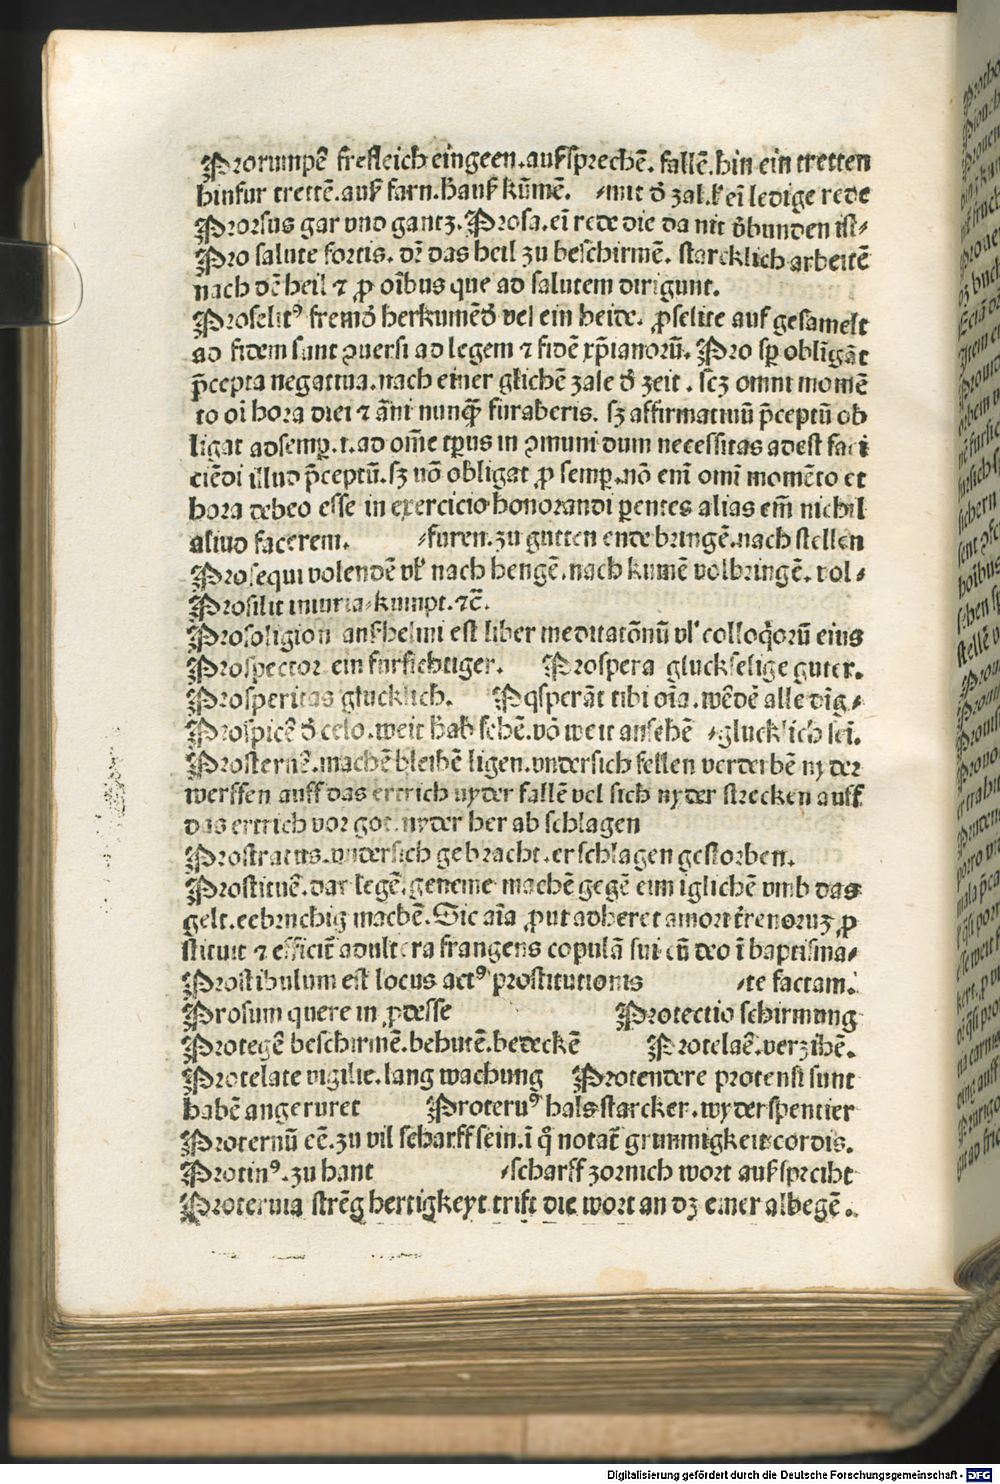 Prorumpē freſleich eingeen.auſſprechē. fallē.hin ein tretten
hinfur trettē.auſ farn.hauſ kūmē. ⸗mit ð zal.ſ eī ledige rede
Prorſus gar vnd gantz.Proſa.eī rede die da nit v̄bunden iſt⸗
Pro ſalute fortis. dꝛ das heil zu beſchirmē. ſtarcklich arbeitē
nach dē heil ⁊ ꝓ oībus que ad ſalutem dirigunt.
Proſelitꝰ fremð herkumēð vel ein heide. ꝓſelite auf geſamelt
ad fidem ſunt ꝯuerſi ad legem ⁊ fidē xp̄ianorū. Pro ſꝑ obligāt
p̄cepta negatiua.nach einer glichē zale ð zeit . ſcz omni momē
to oī hora diei ⁊ āni nunqȝ furaberis. ſz affirmatiuū p̄ceptū ob
ligat adſemꝑ.i.ad om̄e tꝑus in ꝯmuni dum neceſſitas adeſt faci
ciēdi illud p̄ceptū.ſz nō obligat ꝓ ſemꝑ.nō enī omī momēto et
hora debeo eſſe in exercicio honorandi ꝑentes alias em̄ nichil
aliud facerem. ⸗furen.zu gutten ende bringē.nach ſtellen
Proſequi volendē vſ nach hengē.nach kumē volbringē. vol⸗
Proſilit iniuria⸗kumpt.⁊c̄.
Proſoligion anſhelmi eſt liber meditatōnū vl' colloq̄orū eius
Proſpector ein furſichtiger. Proſpera gluckſelige guter.
Proſperitas glucklich. Pꝗſperāt tibi oīa.wēdē alle dīg.⸗
Proſpicē ð celo.weit hab ſehē.vō weit anſehē ⸗glucklich ſeī.
Proſternē.machē bleibē ligen.vnderſich fellen verderbē nyder
werffen auff das ertrich nyder fallē vel ſich nyder ſtrecken auff
das ertrich vor got.nyder her ab ſchlagen
Proſtratus.vnderſich gebracht.erſchlagen geſtorben.
Proſtituē.dar legē.gemeine machē gegē eim iglichē vmb das
gelt.eebruchig machē.Sic aīa ꝓut adheret amori t̄renoruȝ ꝓ
ſtituit ⁊ efficit̄ adultera frangens copulā ſui cū deo ī baptiſma⸗
Proſtibulum eſt locus actꝰ proſtitutionis ⸗te factam.
Proſum quere in ꝓdeſſe Protectio ſchirmung
Protegē beſchirmē.behutē.bedeckē Protelaē.verzihē.
Protelate vigilie.lang wachung Protendere protenſi ſunt
habē angeruret Proteruꝰ halsſtarcker.wyderſpentier
Proternū eē.zu vil ſcharff ſein.ī q̄ notat̄ grimmigkeit cordis.
Protinꝰ.zu hant ⸗ſcharff zornich wort auſſpricht
Proteruia ſtrēg hertigkeyt triſt die wort an dz einer albegē.
Digitalisierung gefördert durch die Deutsche Forschungsgemeinschaft - DFG